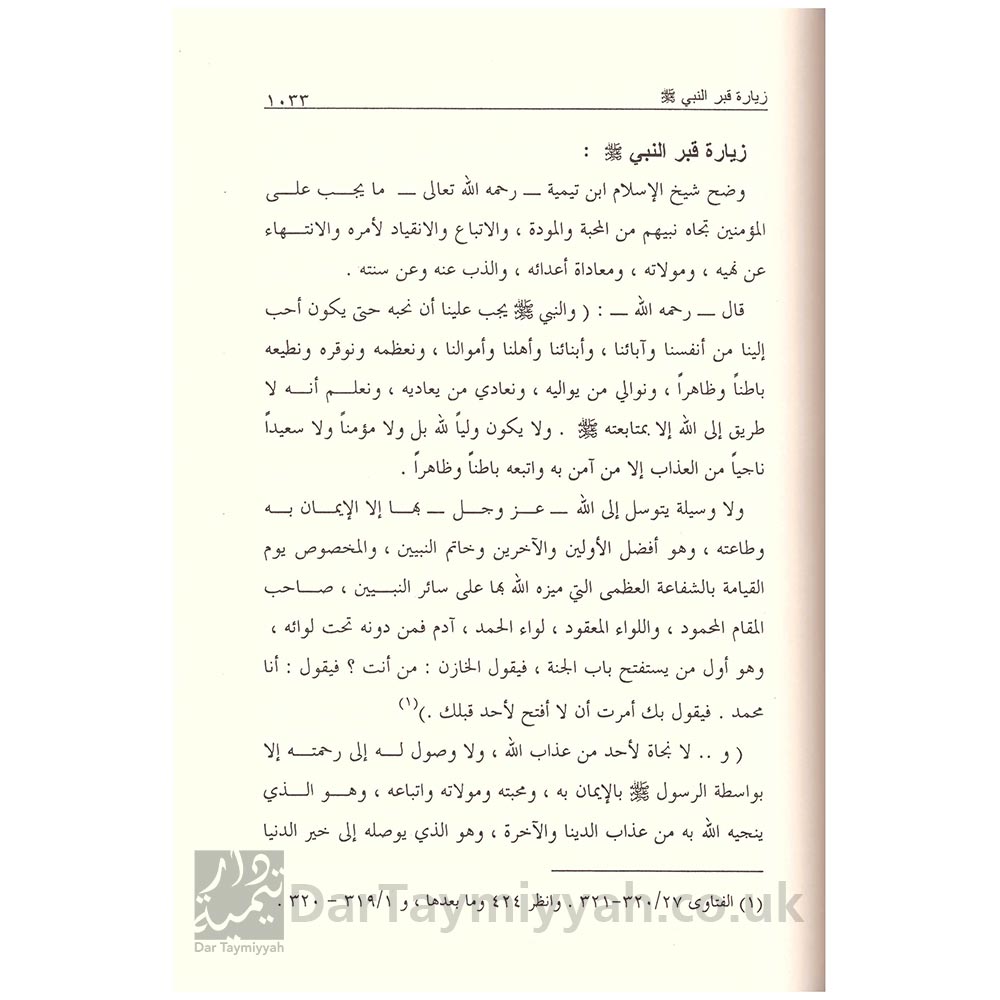 زيارة قبر النبي ﷺ ١٠٣٣
زيارة قبر النبي ﷺ :
وضح شيخ الإسلام ابن تيمية ــ رحمه الله تعالى ــ ما يجب على
المؤمنين تجاه نبيهم من المحبة والمودة ، والاتباع والانقياد لأمره والانتهاء
عن نهيه ، ومولاته ، ومعاداة أعدائه ، والذب عنه وعن سنته .
قال ــ رحمه الله ــ : ( والنبي ﷺ يجب علينا أن نحبه حتى يكون أحب
إلينا من أنفسنا وآبائنا ، وأبنائنا وأهلنا وأموالنا ، ونعظمه ونوقره ونطيعه
باطناً وظاهراً ، ونوالي من يواليه ، ونعادي من يعاديه ، ونعلم أنه لا
طريق إلى الله إلا بمتابعته ﷺ . ولا يكون ولياً لله بل ولا مؤمناً ولا سعيداً
ناجياً من العذاب إلا من آمن به واتبعه باطناً وظاهراً .
ولا وسيلة يتوسل إلى الله ــ عز وجل ــ بها إلا الإيمان به
وطاعته ، وهو أفضل الأولين والآخرين وخاتم النبيين ، والمخصوص يوم
القيامة بالشفاعة العظمى التي ميزه الله بها على سائر النبيين ، صاحب
المقام المحمود ، واللواء المعقود ، لواء الحمد ، آدم فمن دونه تحت لوائه ،
وهو أول من يستفتح باب الجنة ، فيقول الخازن : من أنت ؟ فيقول : أنا
محمد . فيقول بك أمرت أن لا أفتح لأحد قبلك .)(١)
( و .. لا نجاة لأحد من عذاب الله ، ولا وصول له إلى رحمته إلا
بواسطة الرسول ﷺ بالإيمان به ، ومحبته ومولاته واتباعه ، وهو الذي
ينجيه الله به من عذاب الدينا والآخرة ، وهو الذي يوصله إلى خير الدنيا
(١) الفتاوى ٢٧/٣٢٠-٣٢١ . وانظر ٤٢٤ وما بعدها ، و ١/٣١٩ – ٣٢٠ .
دار تيمية
Dar Taymiyyah
DarTaymiyyah.co.uk